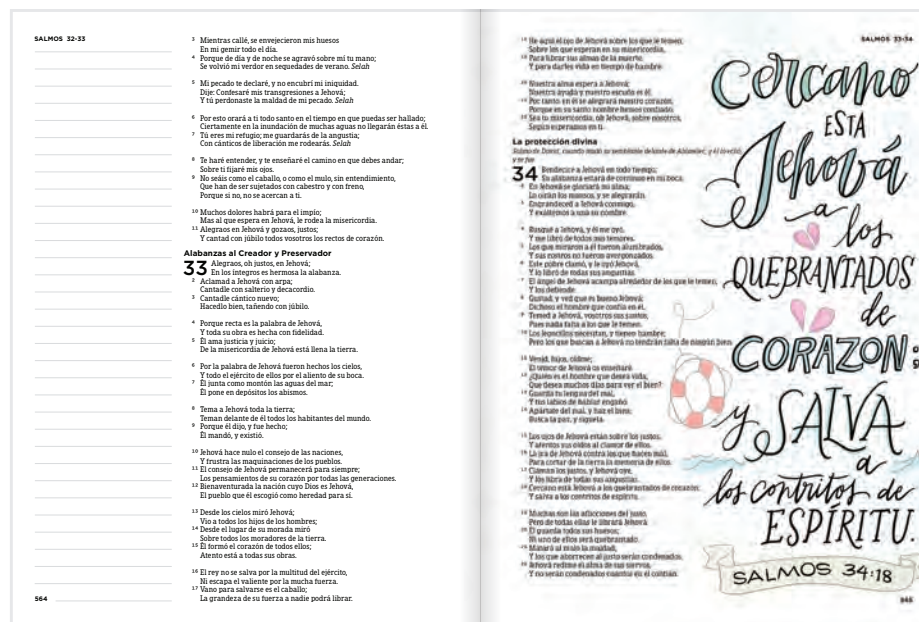 SALMOS 32-33
3 Mientras callé, se envejecieron mis huesos
En mi gemir todo el día.
4 Porque de día y de noche se agravó sobre mí tu mano;
Se volvió mi verdor en sequedades de verano. Selah
5 Mi pecado te declaré, y no encubrí mi iniquidad.
Dije: Confesaré mis transgresiones a Jehová;
Y tú perdonaste la maldad de mi pecado. Selah
6 Por esto orará a ti todo santo en el tiempo en que puedas ser hallado;
Ciertamente en la inundación de muchas aguas no llegarán éstas a él.
7 Tú eres mi refugio; me guardarás de la angustia;
Con cánticos de liberación me rodearás. Selah
8 Te haré entender, y te enseñaré el camino en que debes andar;
Sobre ti fijaré mis ojos.
9 No seáis como el caballo, o como el mulo, sin entendimiento,
Que han de ser sujetados con cabestro y con freno,
Porque si no, no se acercan a ti.
10 Muchos dolores habrá para el impío;
Mas al que espera en Jehová, le rodea la misericordia.
11 Alegraos en Jehová y gozaos, justos;
Y cantad con júbilo todos vosotros los rectos de corazón.
Alabanzas al Creador y Preservador
33 Alegraos, oh justos, en Jehová;
En los íntegros es hermosa la alabanza.
2 Aclamad a Jehová con arpa;
Cantadle con salterio y decacordio.
3 Cantadle cántico nuevo;
Hacedlo bien, tañendo con júbilo.
4 Porque recta es la palabra de Jehová,
Y toda su obra es hecha con fidelidad.
5 Él ama justicia y juicio;
De la misericordia de Jehová está llena la tierra.
6 Por la palabra de Jehová fueron hechos los cielos,
Y todo el ejército de ellos por el aliento de su boca.
7 Él junta como montón las aguas del mar;
Él pone en depósitos los abismos.
8 Tema a Jehová toda la tierra;
Teman delante de él todos los habitantes del mundo.
9 Porque él dijo, y fue hecho;
Él mandó, y existió.
10 Jehová hace nulo el consejo de las naciones,
Y frustra las maquinaciones de los pueblos.
11 El consejo de Jehová permanecerá para siempre;
Los pensamientos de su corazón por todas las generaciones.
12 Bienaventurada la nación cuyo Dios es Jehová,
El pueblo que él escogió como heredad para sí.
13 Desde los cielos miró Jehová;
Vio a todos los hijos de los hombres;
14 Desde el lugar de su morada miró
Sobre todos los moradores de la tierra.
15 Él formó el corazón de todos ellos;
Atento está a todas sus obras.
16 El rey no se salva por la multitud del ejército,
Ni escapa el valiente por la mucha fuerza.
17 Vano para salvarse es el caballo;
La grandeza de su fuerza a nadie podrá librar.
564
SALMOS 33-34
18 He aquí el ojo de Jehová sobre los que le temen,
Sobre los que esperan en su misericordia,
19 Para librar sus almas de la muerte,
Y para darles vida en tiempo de hambre.
20 Nuestra alma espera a Jehová;
Nuestra ayuda y nuestro escudo es él.
21 Por tanto, en él se alegrará nuestro corazón,
Porque en su santo nombre hemos confiado.
22 Sea tu misericordia, oh Jehová, sobre nosotros,
Según esperamos en ti.
La protección divina
Salmo de David, cuando mudó su semblante delante de Abimelec, y él lo echó,
y se fue.
34 Bendeciré a Jehová en todo tiempo;
Su alabanza estará de continuo en mi boca.
2 En Jehová se gloriará mi alma;
Lo oirán los mansos, y se alegrarán.
3 Engrandeced a Jehová conmigo,
Y exaltemos a una su nombre.
4 Busqué a Jehová, y él me oyó,
Y me libró de todos mis temores.
5 Los que miraron a él fueron alumbrados,
Y sus rostros no fueron avergonzados.
6 Este pobre clamó, y le oyó Jehová,
Y lo libró de todas sus angustias.
7 El ángel de Jehová acampa alrededor de los que le temen,
Y los defiende.
8 Gustad, y ved que es bueno Jehová;
Dichoso el hombre que confía en él.
9 Temed a Jehová, vosotros sus santos,
Pues nada falta a los que le temen.
10 Los leoncillos necesitan, y tienen hambre;
Pero los que buscan a Jehová no tendrán falta de ningún bien.
11 Venid, hijos, oídme;
El temor de Jehová os enseñaré.
12 ¿Quién es el hombre que desea vida,
Que desea muchos días para ver el bien?
13 Guarda tu lengua del mal,
Y tus labios de hablar engaño.
14 Apártate del mal, y haz el bien;
Busca la paz, y síguela.
15 Los ojos de Jehová están sobre los justos,
Y atentos sus oídos al clamor de ellos.
16 La ira de Jehová contra los que hacen mal,
Para cortar de la tierra la memoria de ellos.
17 Claman los justos, y Jehová oye,
Y los libra de todas sus angustias.
18 Cercano está Jehová a los quebrantados de corazón;
Y salva a los contritos de espíritu.
19 Muchas son las aflicciones del justo,
Pero de todas ellas le librará Jehová.
20 Él guarda todos sus huesos;
Ni uno de ellos será quebrantado.
21 Matará al malo la maldad,
Y los que aborrecen al justo serán condenados.
22 Jehová redime el alma de sus siervos,
Y no serán condenados cuantos en él confían.
Cercano
ESTÁ
Jehová
a
los
QUEBRANTADOS
de
CORAZON:
y SALVA
a
los contritos de
ESPÍRITU.
SALMOS 34:18
565